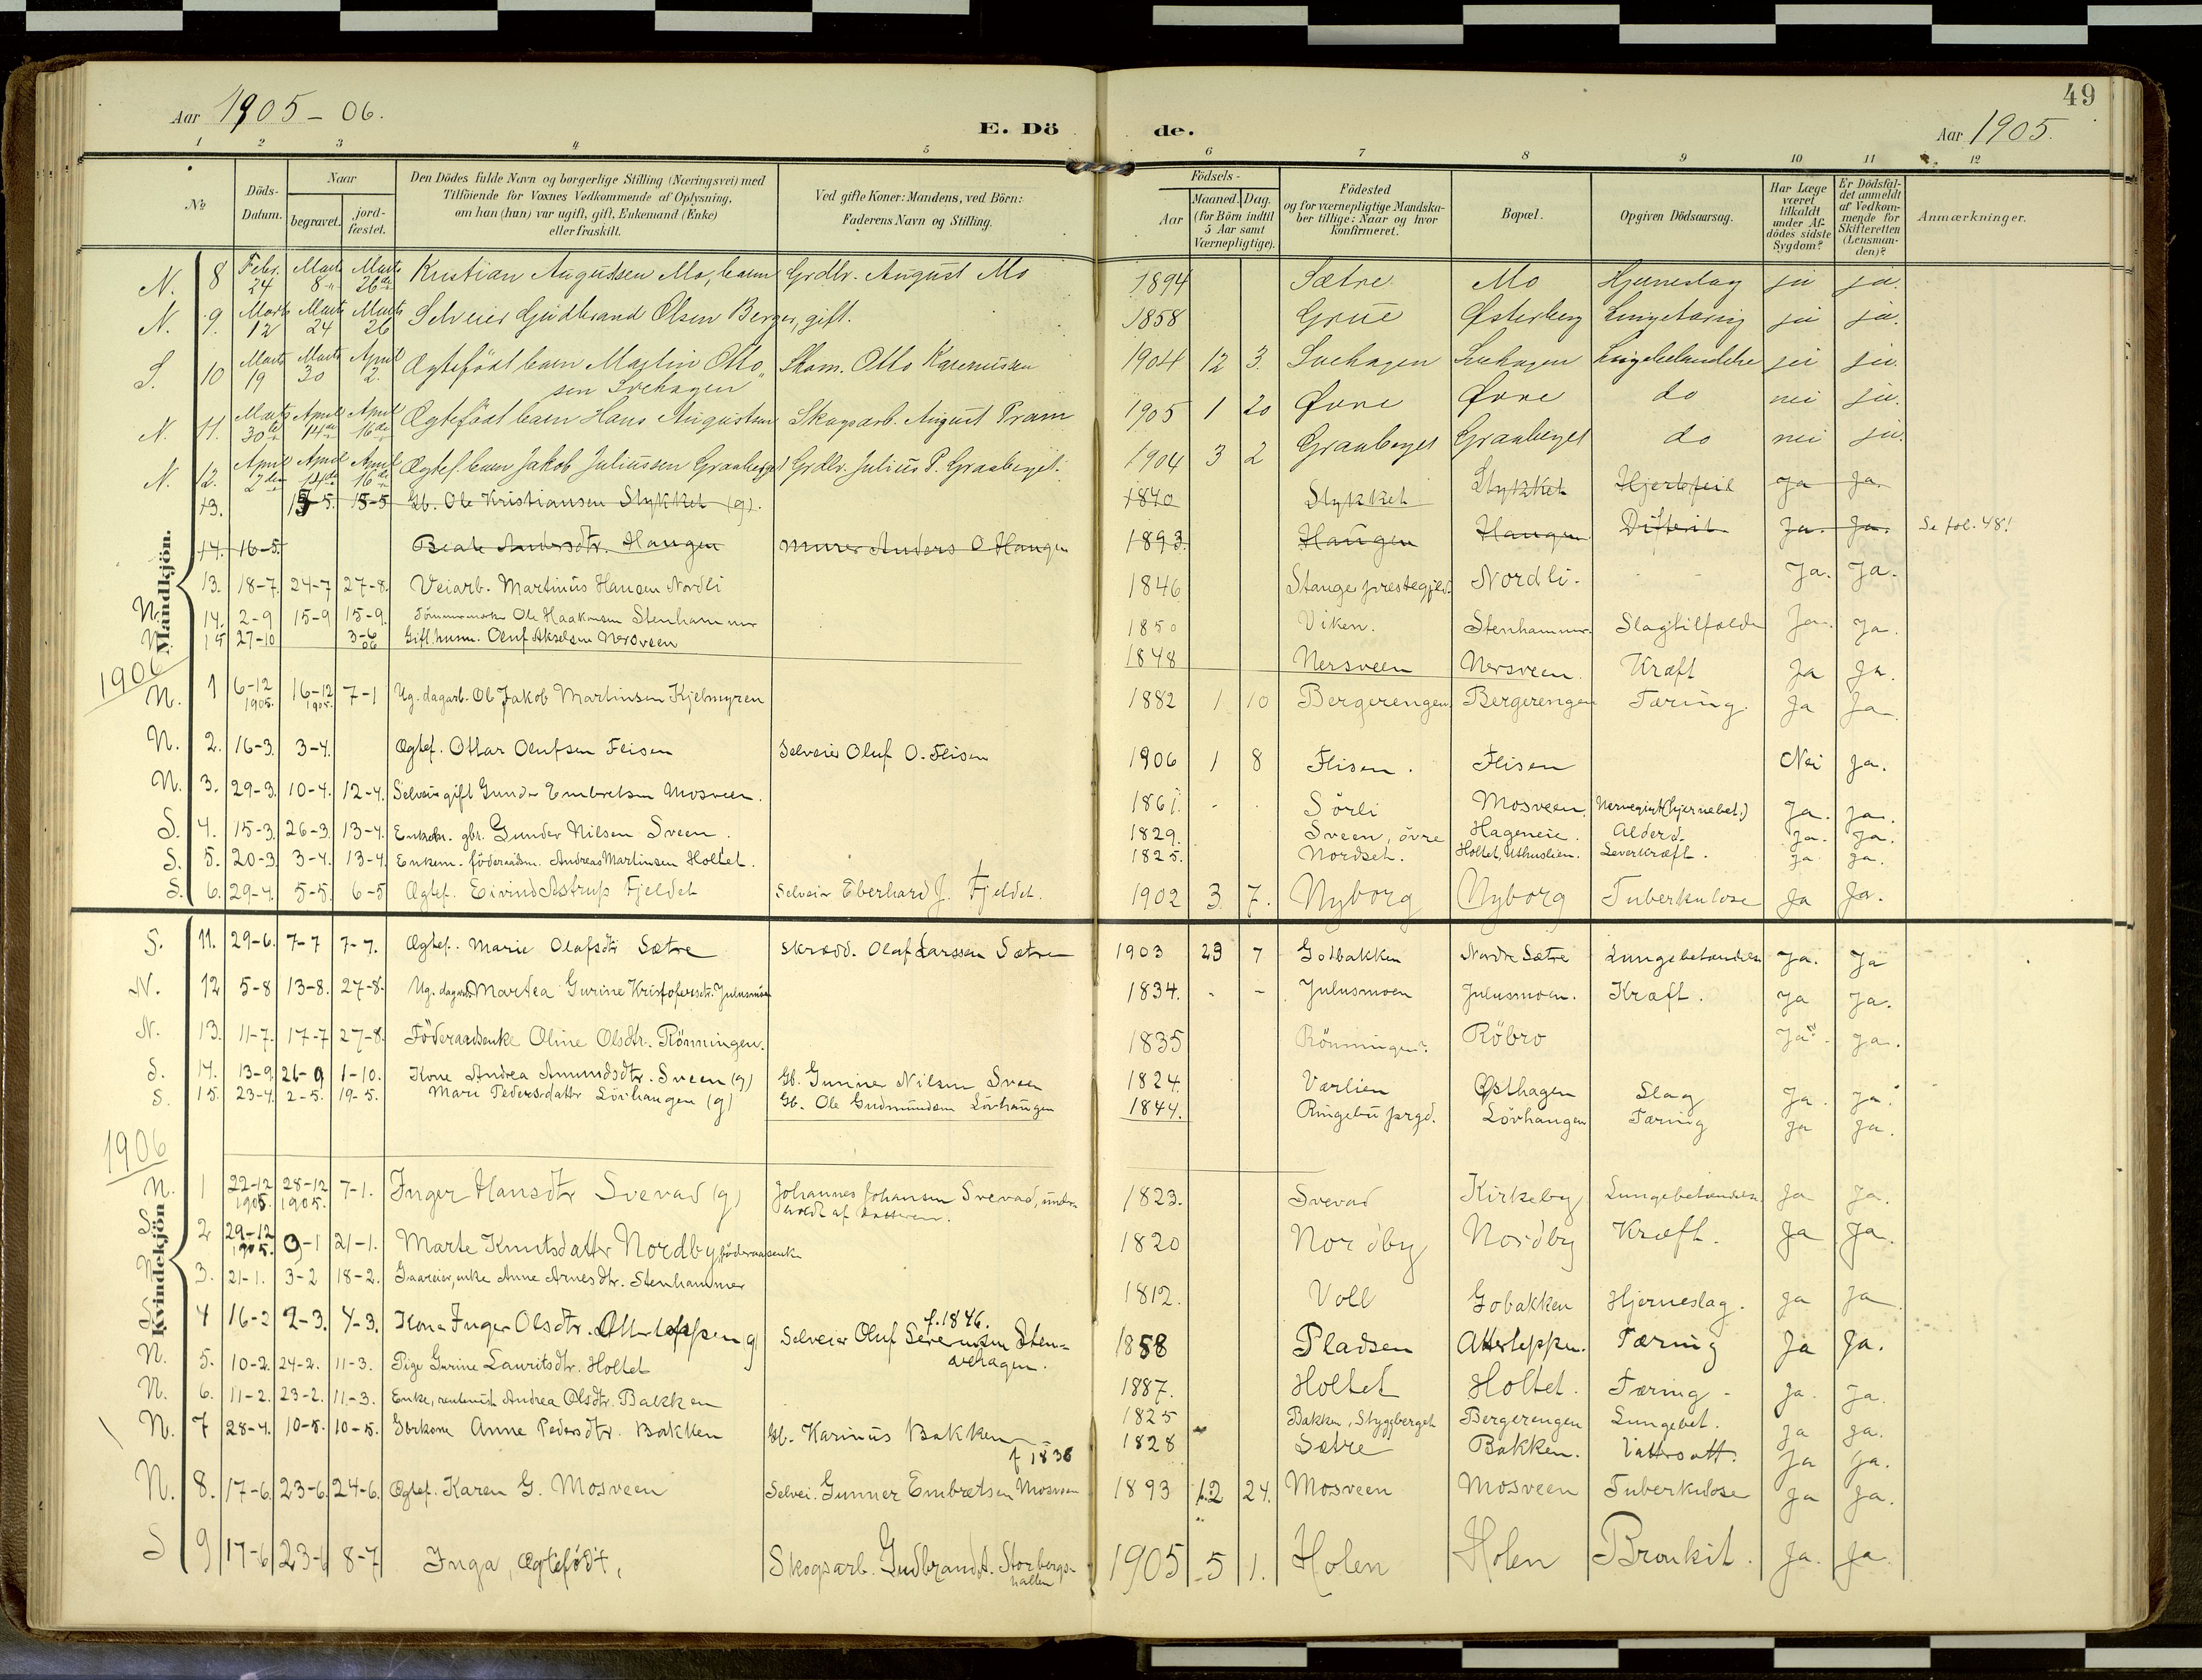 49
Aar 1905-06.
E. Dö de.
Aar 1905.
1 2 3 4 5 6 7 8 9 10 11 12
№
Döds-Datum.
Naar
begravet.
jord-fæstet.
Den Dödes fulde Navn og borgerlige Stilling (Næringsvei) med
Tilföiende for Voxnes Vedkommende af Oplysning,
om han (hun) var ugift, gift, Enkemand (Enke)
eller fraskilt.
Ved gifte Koner: Mandens, ved Börn:
Faderens Navn og Stilling.
Födsels-
Aar
Maaned. Dag.
(for Börn indtil
5 Aar samt
Værnepligtige).
Födested
og for værnepligtige Mandska-
ber tillige: Naar og hvor
konfirmeret.
Bopæl.
Opgiven Dödsaarsag.
Har Læge
været
tilkaldt
under Af-
dödes sidste
Sygdom?
Er Dödsfal-
det anmeldt
af Vedkom-
mende for
Skifteretten
(Lensman-
den)?
Anmærkninger.
Mandkjön.
N. 8 Febr. 24 Marts 8 Marts 26de Kristian Augudsen Mo, barn Grdbr. August Mo 1894 Sætre Mo Hjerneslag ja ja.
N. 9. Marts 12 Marts 24 Marts 26 Selveier Gudbrand Olsen Berger, gift. 1858 Grue Østerberg Lungetæring ja ja.
S. 10 Marts 19 Marts 30 April 2. Ægtefödt barn Martin Otto- Skom. Otto Karenussen 1904 12 3. Svehagen Svehagen ja ja.
sen Svehagen
N. 11. Marts 30te April 14de April 16de Ægtefödt barn Hans Skogsarb. August Pram 1905 1 20 Øvre Øvre do nei ja.
N. 12. April April 14de April 16de Ægtef. barn Jakob Juliussen Graaberget Grdbr. Julius P. Graaberget. 1904 3 2 Graaberget Graaberget do nei ja.
13. 15-5 Gb. Ole Kristiansen Stykket (g). 1840 Stykket Stykket Hjertefeil Ja Ja.
14. 16-5. Beate Andersdtr. Haugen Murer Anders O Haugen 1893. Haugen Haugen Difterit Ja. Ja. Se fol. 48!
13. 18-7 24-7 27-8. Veiarb. Martinus Hansen Nordli 1846 Stange prestegjeld. Nordli. - - Ja. Ja.
N. 14. 2-9 15-9 15-9. Ole Haakonsen Stenhammer 1850 Viken. Stenhammer. Slagtilfælde Ja. Ja.
N. 15 27-10 3-6 06 Gift husm. Oluf Akselsen Nersveen 1848 Nersveen Nersveen. Kræft Ja Ja.
1906
N. 1 6-12 1905. 16-12 1905. 7-1 Ug. dagarb. Ol Jakob Martinsen Kjelmyren 1882 1 10 Bergerengen Bergerengen Tæring. Ja Ja.
N. 2. 16-3. 3-4. Ægtef. Ottar Olufsen Flisen Selveier Oluf O. Flisen 1906 1 8 Flisen. Flisen Nei Ja.
N. 3. 29-3. 10-4. 12-4. Selveier gift Gunder Embretsen Mosveen. 1861. - . Sörli Mosveen Ja. Ja.
S. 4. 15-3. 26-3. 13-4. Enkem. gbr. Gunder Nilsen Sveen. 1829. Sveen, övre Hageneie. Alderd. Ja. Ja.
S. 5. 20-3 3-4. 13-4. Enkem. föderaadsm. Andreas Martinsen Holtet. 1825. Nordseth. Holtet, Uthuslien. Leverkræft. Ja. Ja.
S. 6. 29-4. 5-5. 6-5 Ægtef. Eivind Astrup Fjeldet Selveier Eberhard J. Fjeldet. 1902 3 7. Nyborg Nyborg Tuberkulose Ja Ja.
Kvindekjön
S. 11. 29-6. 7-7 7-7. Ægtef. Marie Olafsdtr Sætre Skrædd. Olaf Larssen Sætre 1903 7 Gobakken Nordre Sætre Lungebetændelse Ja. Ja
N. 12 5-8 13-8. 27-8. Martea Gurine Kristofersdtr. Julusmoen 1834. - - Julusmoen Julusmoen. Kræft. Ja Ja.
N. 13. 11-7. 17-7 27-8. Föderaadsenke Oline Olsdtr. Rönningen. 1835 Rönningen? Röbro Ja. Ja.
S. 14. 13-9 26-9 1-10. Kone Andrea Amundsdtr. Sveen (g) Gb. Gunner Nilsen Sveen 1824. Værlien Østhagen Slag Ja. Ja.
S. 15. 23-4. 2-5. 19-5. Mari Pedersdatter Lövhaugen (g) Gb. Ole Gudmundsen Lövhaugen 1844. Ringebu prgd. Lövhaugen Tæring Ja Ja.
1906
N. 1 22-12 1905. 28-12 1905. 7-1. Inger Hansdtr Svevad (g) Johannes Johansen Svevad, under-
holdt af datteren. 1823. Svevad Kirkeby Lungebetændelse Ja Ja.
S. 2 29-12 1905. 9-1 21-1. Marte Knutsdatter Nordby, föderaadsenke 1820 Nordby Nordby Kræft. Ja Ja.
N. 3. 21-1. 3-2 18-2. Gaareier, enke Anne Arnesdtr. Stenhammer 1812. Voll Gobakken Hjerneslag. Ja Ja
S. 4 16-2 2-3. 4-3. Kone Inger Olsdtr. Atterleppen (g) Selveier Oluf Severinsen f. 1846. 1858 Pladsen Atterleppen. Tæring Ja Ja.
N. 5. 10-2. 24-2. 11-3. Pige Gurine Lauritsdtr. Holtet 1887. Holtet Holtet. Tæring - Ja. Ja.
N. 6. 11-2. 23-2. 11-3. Enke, Andrea Olsdtr. Bakken 1825 Bakken, Styggberget Bergerengen Lungebet. Ja Ja.
N. 7 28-4. 10-5. 10-5. Gbrkone Anne Pedersdtr. Bakken Gb. Karinus Bakken f 1836 1828 Sætre Bakken. Vattersott. Ja Ja.
N. 8. 17-6. 23-6. 24-6. Ægtef. Karen G. Mosveen Selvei. Gunner Embretsen Mosveen 1893 12 24. Mosveen Mosveen Tuberkulose Ja Ja.
S 9 17-6 23-6 8-7 Inga, Ægtefödt, Skogsarb. Gudbrand A. Storbergs-
hallen 1905 5 1. Holen Holen Bronkit. Ja. Ja.